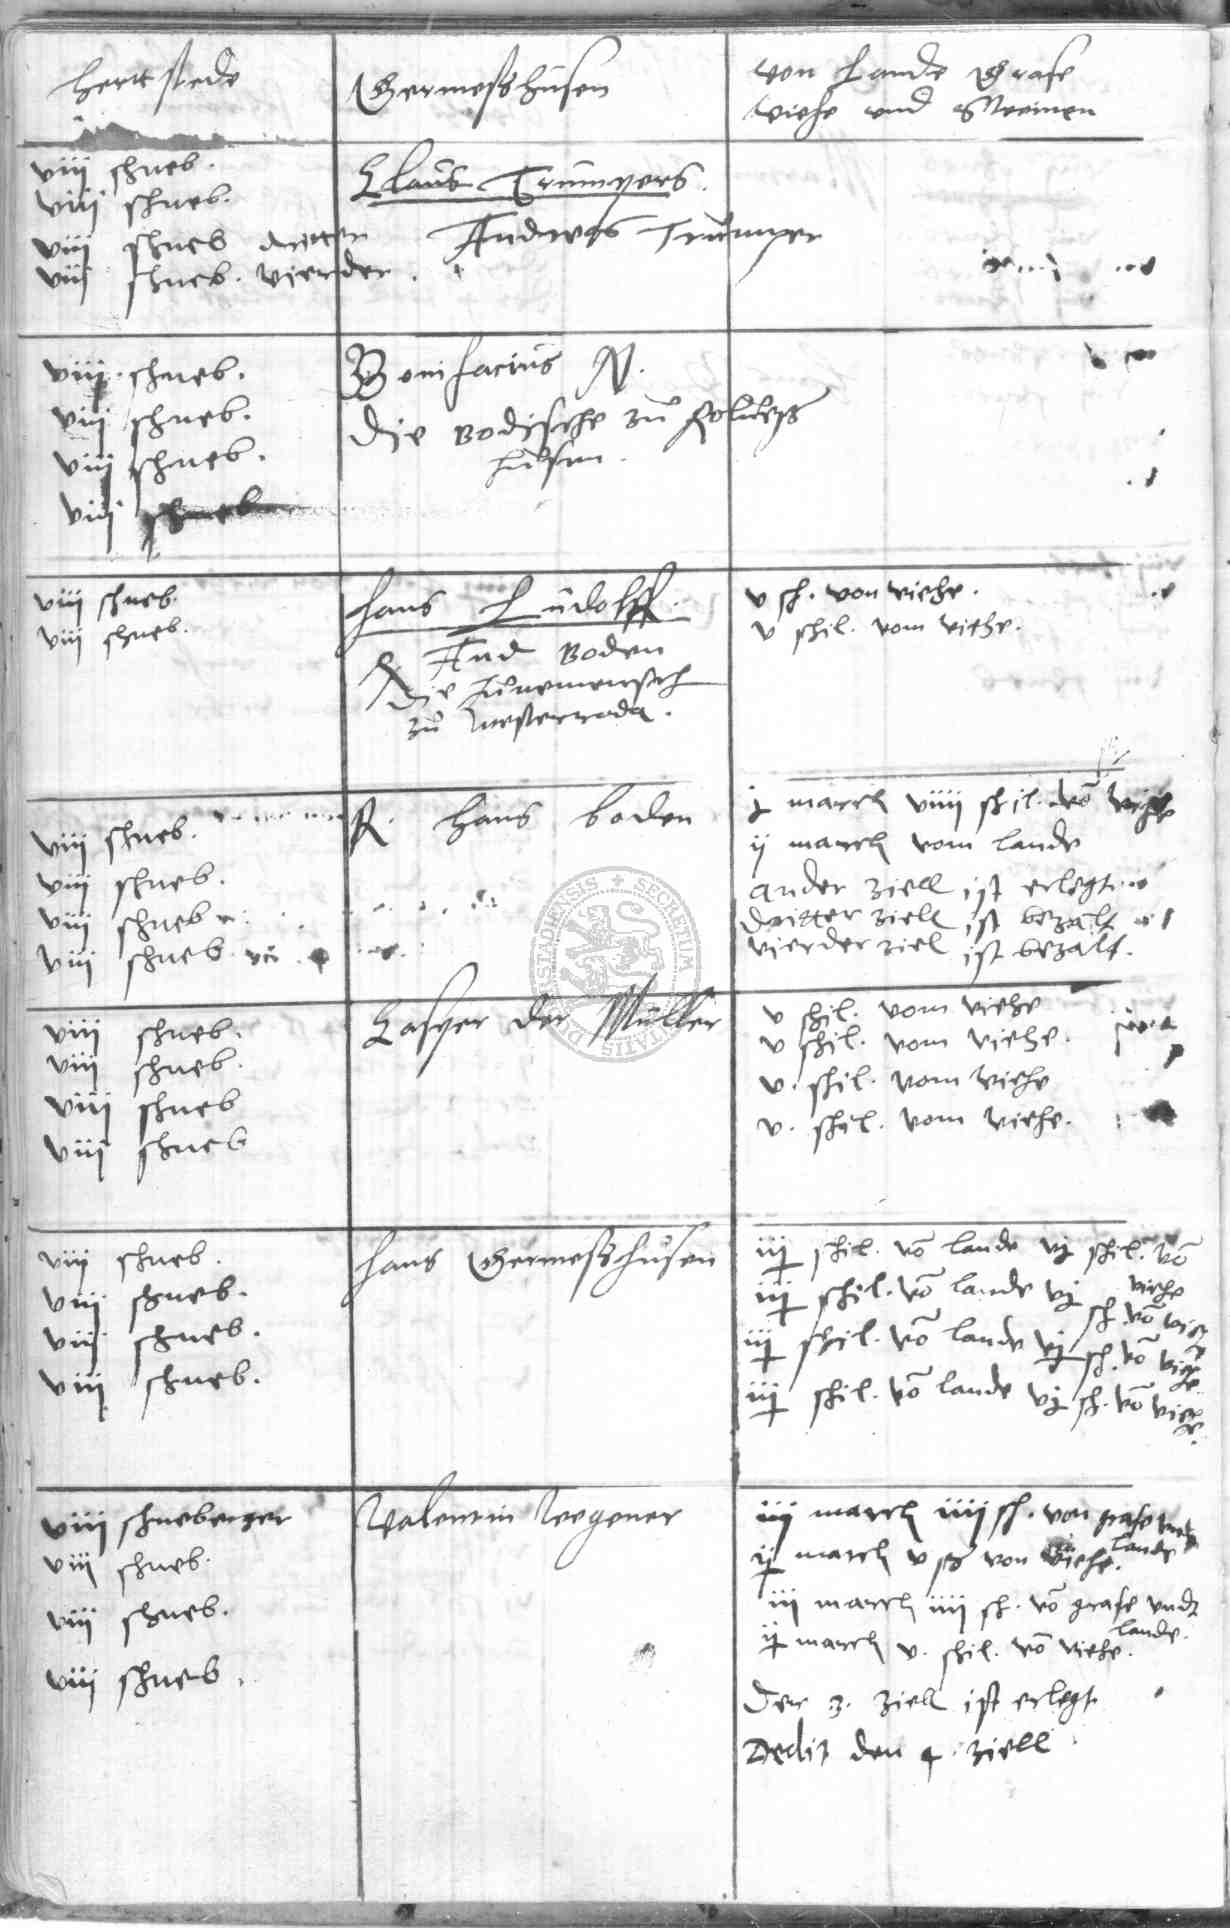 hertstede
Germeßhusen
von Lande Grase
Viehe und Meinen
viii schneb.
viii schneb.
viii schneb dritter
viii schneb. vierder.
Claus Trümpers.
Andreas Trümper
viii schneb.
viii schneb.
viii schneb.
viii schneb
Bonifacius N.
Die Bodische zu
husen.
viii schneb.
viii schneb.
Hans Ludolff.
And Boden
Die
zu Westerroda.
v sch. von viehe.
v schil. vom viehe.
viii schneb.
viii schneb.
viii schneb
viii schneb
R. Hans boden
j march viiii schil. võ viehe
ij march vom lande
ander ziell ist erlegt
dritter ziell ist bezalt
vierder ziel ist bezalt.
SECRETUM
STADENSIS
viii schneb.
viii schneb.
viii schneb
viii schneb
Casper der Müller
v schil. vom viehe
v schil. vom viehe.
v. schil. vom viehe
v. schil. vom viehe.
viii schneb.
viii schneb.
viii schneb.
viii schneb.
Hans Germeßhusen
iij schil. võ lande vj schil. võ
viehe
iij schil. võ lande vj sch. võ viehe
iij schil. võ lande vj sch. võ viehe
iij schil. võ lande vj sch. võ viehe.
viii schneberger
viii schneb.
viii schneb.
viii schneb.
Valentin Wegener
iij march iiii sch. von grase und
lande
ij march v von viehe.
iij march iiii sch. võ grase undt
lande.
ij march v. schil. võ viehe.
Der 3. ziell ist erlegt
Dedit den 4. ziell